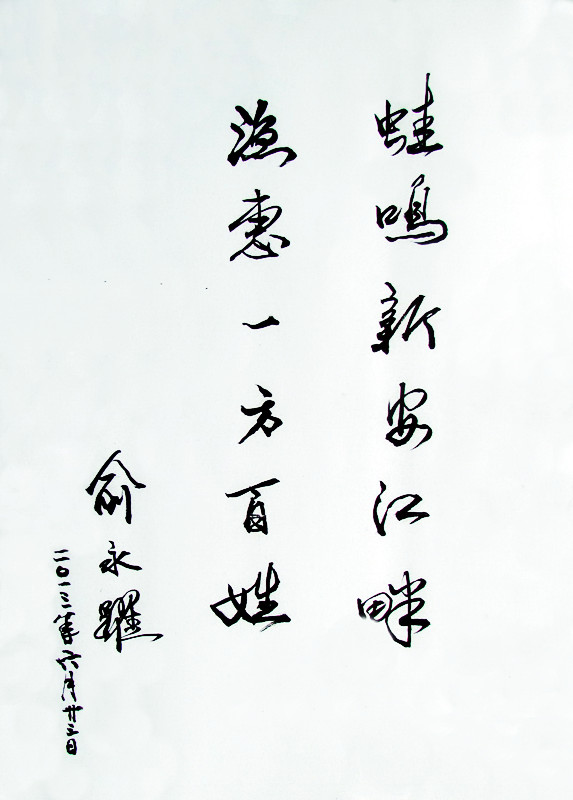 蛙鸣新安江畔
渔惠一方百姓
俞永躍
二〇一二年六月廿三日